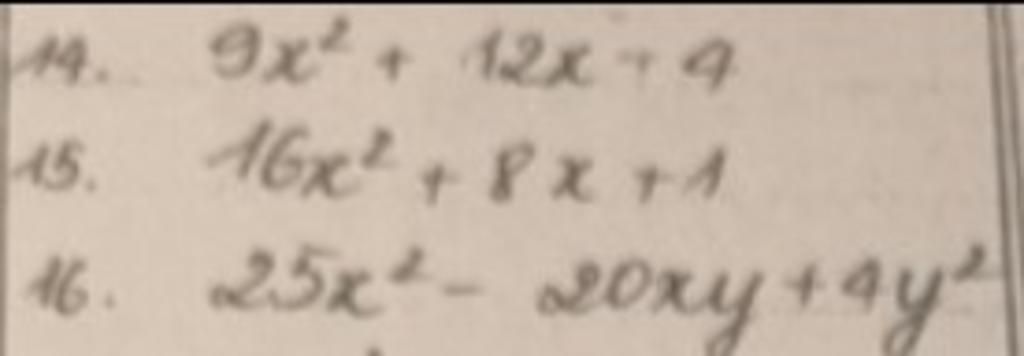 14. 9x² + 12x + 4
15. 16x² + 8x + 1
16. 25x² - 20xy + 4y²